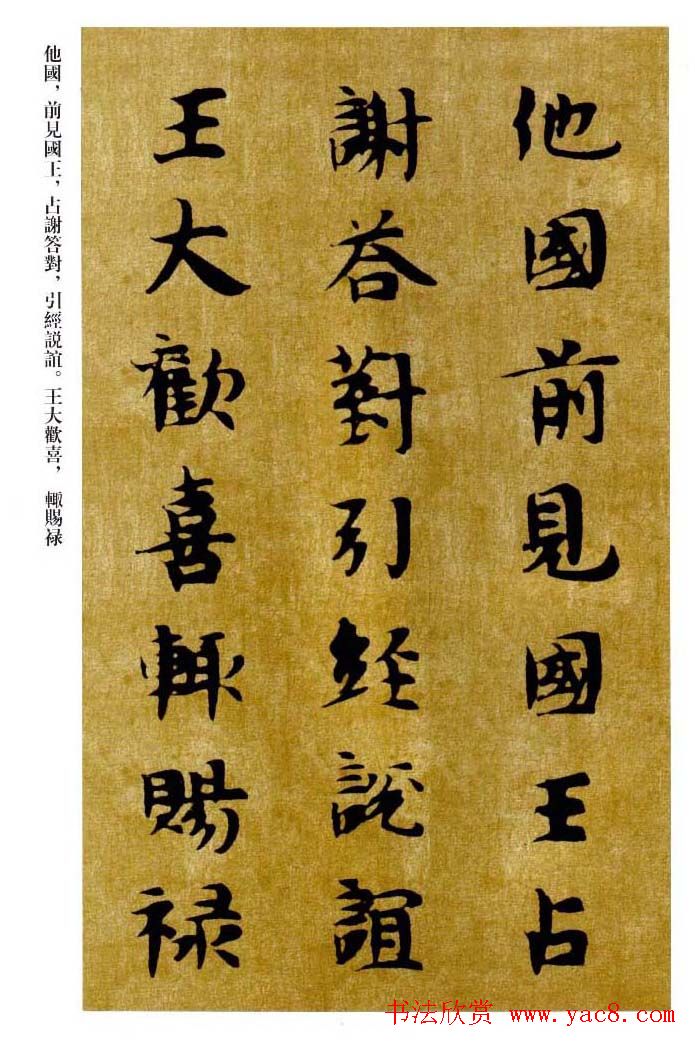 他國前見國王占
謝荅對引經說誼
王大歡喜輙賜禄
他國，前見國王，占謝答對，引經説誼。王大歡喜，輙賜禄
书法欣赏 www.yac8.com